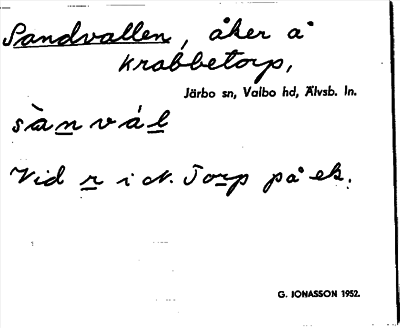 Sandvallen, åker å
Krabbetorp,
Järbo sn, Valbo hd, Älvsb. ln.
sànvál
Vid r i N. Torp på ek.
G. JONASSON 1952.